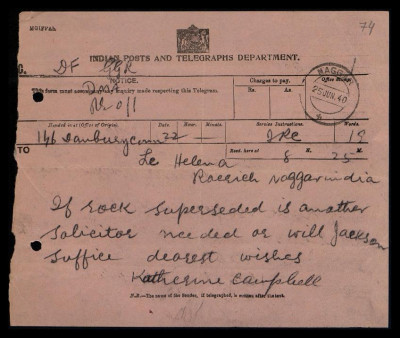 74
INDIAN POSTS AND TELEGRAPHS DEPARTMENT.
G. DF GGR
NOTICE.
This form must accompany any inquiry made respecting this Telegram.
Charges to pay.
Rs. As.
Office Stamp.
NAGGAR
25 JUN. 40
Handed in at (Office of Origin).
Date.
Hour.
Minute.
Service Instructions.
Words.
146 Danburyconn 22 —
19
TO
Recd. here at 8 H. 25 M.
Le Helena
Roerich naggarindia
If rock superseded is another
solicitor needed or will Jackson
suffice dearest wishes
Katherine Campbell
N.B.—The name of the Sender, if telegraphed, is written after the text.